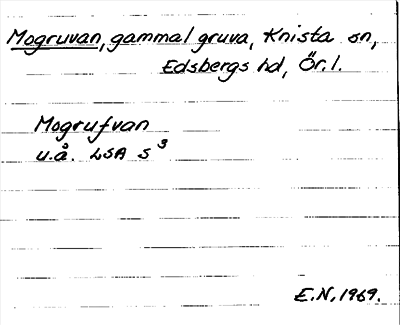 Mogruvan, gammal gruva, Knista sn,
Edsbergs hd, Ör. l.
Mogrufvan
u.å. LSA S³
E.N. 1969.